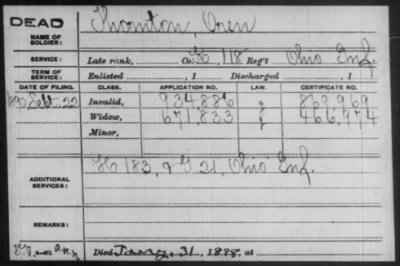 DEAD
NAME OF SOLDIER: Thornton, Oren
SERVICE: Late rank, Co. K, 118 Reg't Ohio Inf.
TERM OF SERVICE: Enlisted , 1 Discharged , 1
DATE OF FILING. CLASS. APPLICATION NO. LAW. CERTIFICATE NO.
1890 Sept. 22 Invalid, 934,886 869,969
Widow, 671,833 466,974
Minor,
ADDITIONAL SERVICES: K 183, & G 21, Ohio Inf.
REMARKS:
Died 31, 1898, at